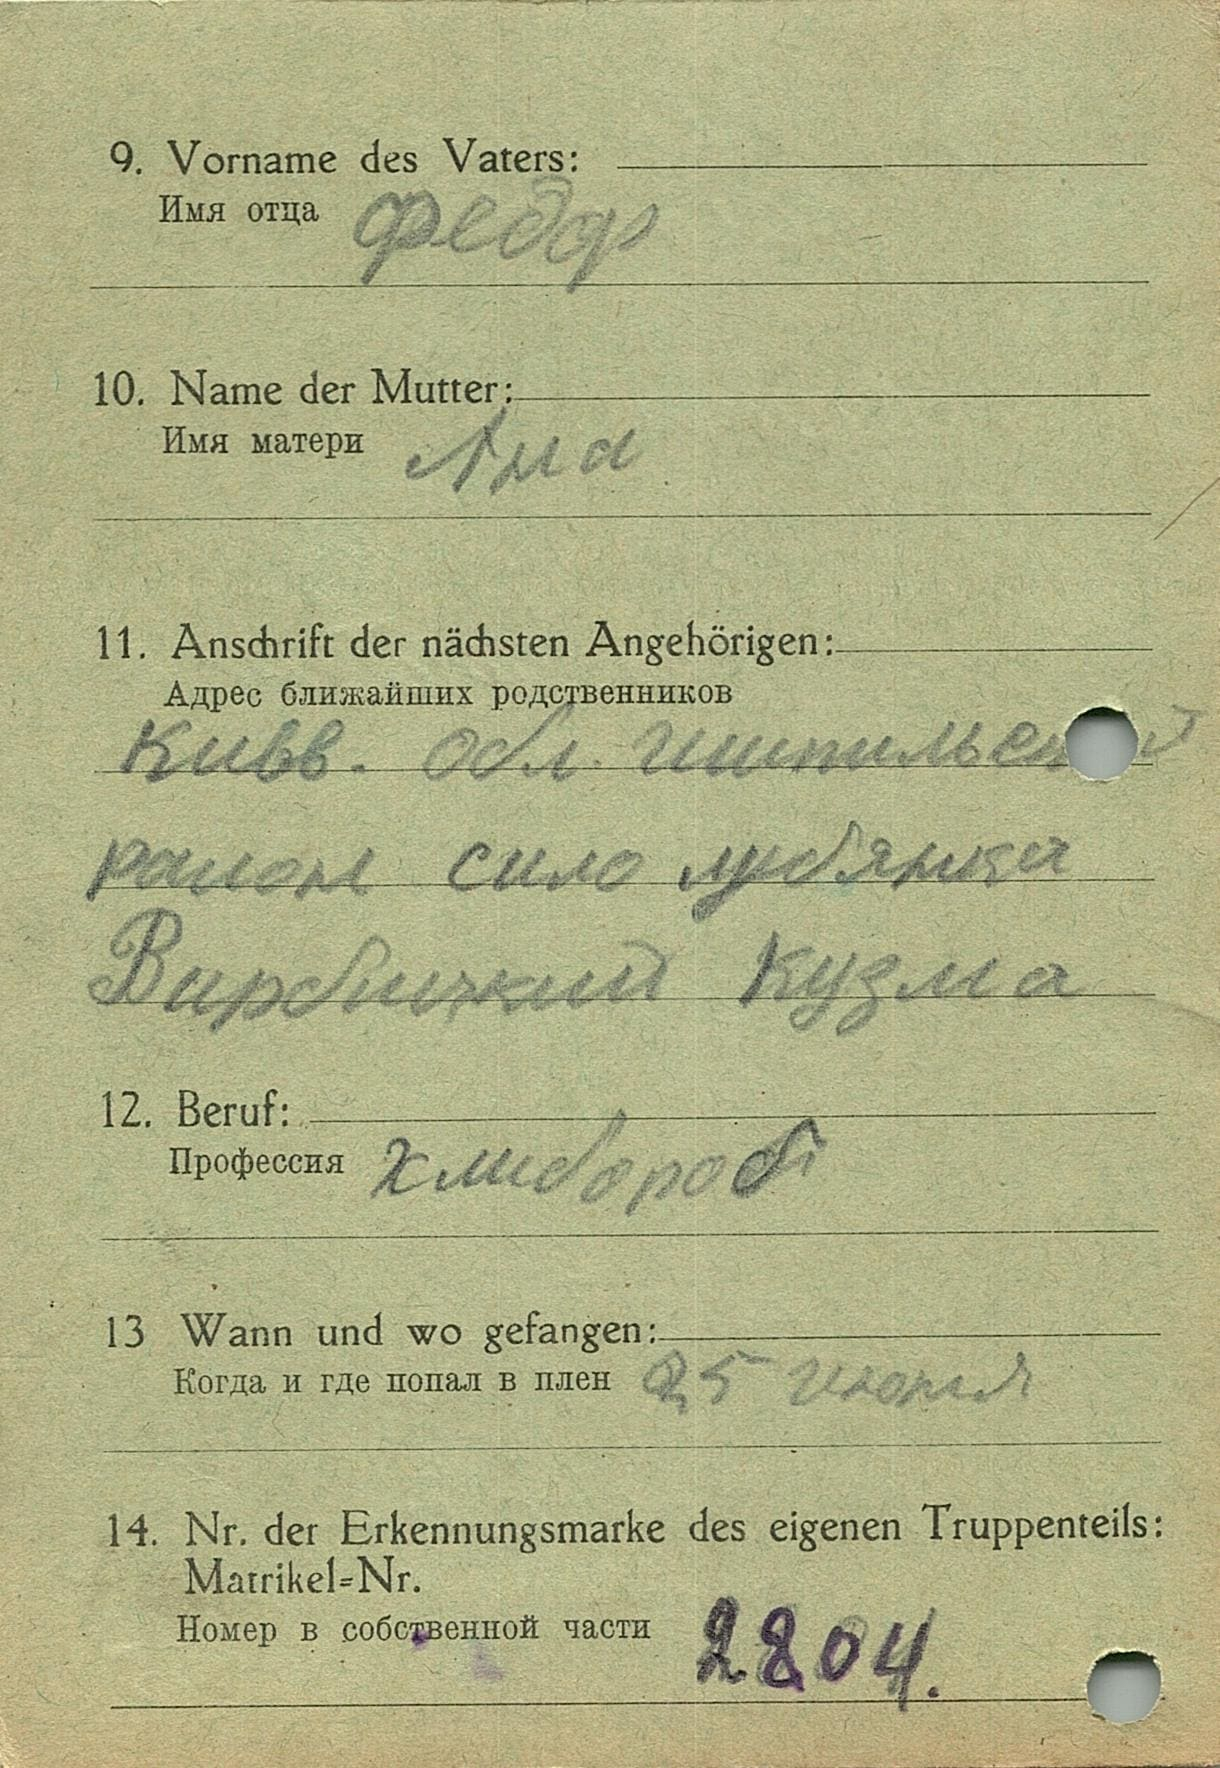 9. Vorname des Vaters:
Имя отца Федор
10. Name der Mutter:
Имя матери Ана
11. Anschrift der nächsten Angehörigen:
Адрес ближайших родственников
Кивв. обл.
район сило любянка
Вирбицкий Кузма
12. Beruf:
Профессия хлибороб
13 Wann und wo gefangen:
Когда и где попал в плен 25 июня
14. Nr. der Erkennungsmarke des eigenen Truppenteils:
Matrikel-Nr.
Номер в собственной части 2804.